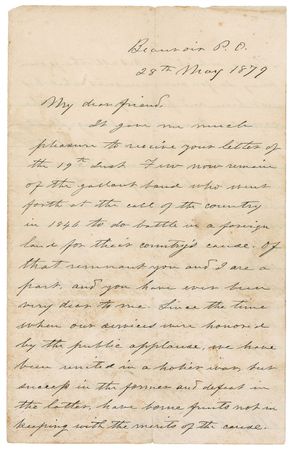 Beauvoir P. O.
28th May 1879
My dear friend,
It gave me much
pleasure to receive your letter of
the 19th Inst. Few now remain
of the gallant band who went
forth at the call of the country
in 1846 to do battle in a foreign
land for their country's cause. Of
that remnant you and I are a
part, and you have ever been
very dear to me. Since the time
when our services were honored
by the public applause, we have
been united in a holier war, but
success in the former and defeat in
the latter, have borne fruits not in
keeping with the merits of the cause.